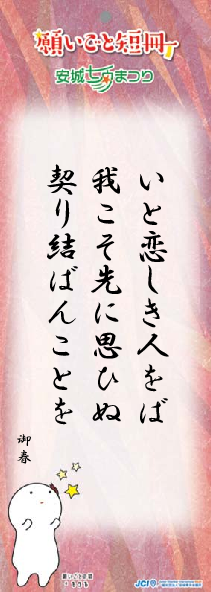 願いごと短冊
安城七夕まつり
いと恋しき人をば
我こそ先に思ひぬ
契り結ばんことを
御春
JCI